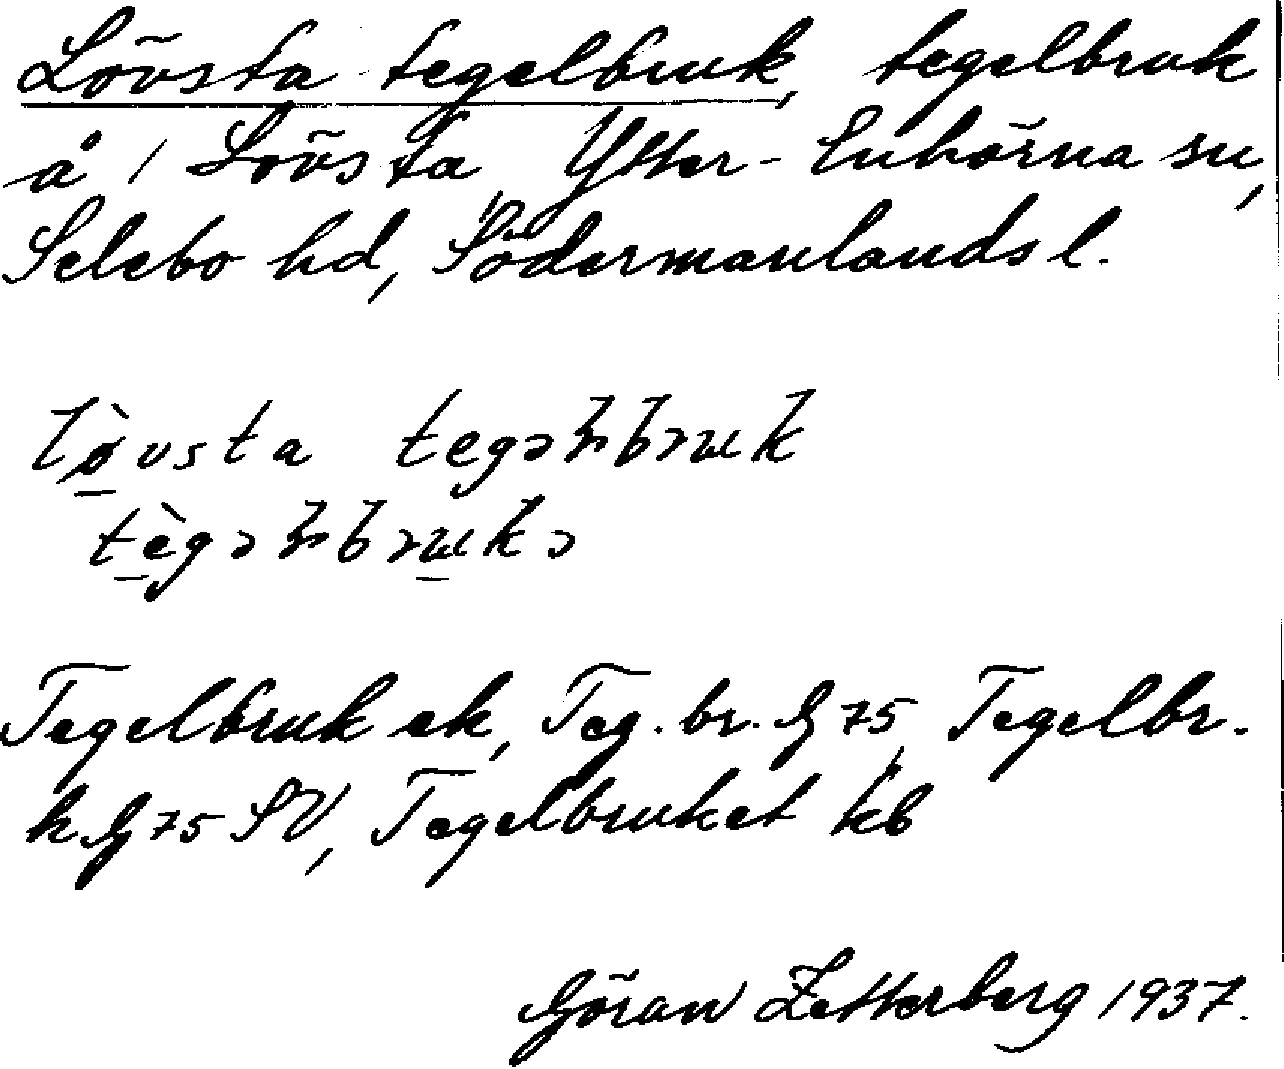 Lövsta tegelbruk, tegelbruk
å 1 Lövsta, Ytter-Enhörna sn,
Selebo hd, Södermanlands l.
lø̀vsta tegəɫbruk
tègəɫbrukə
Tegelbruk ek, Teg. br. G 75, Tegelbr.
h G 75 SV, Tegelbruket kb
Göran Zetterberg 1937.